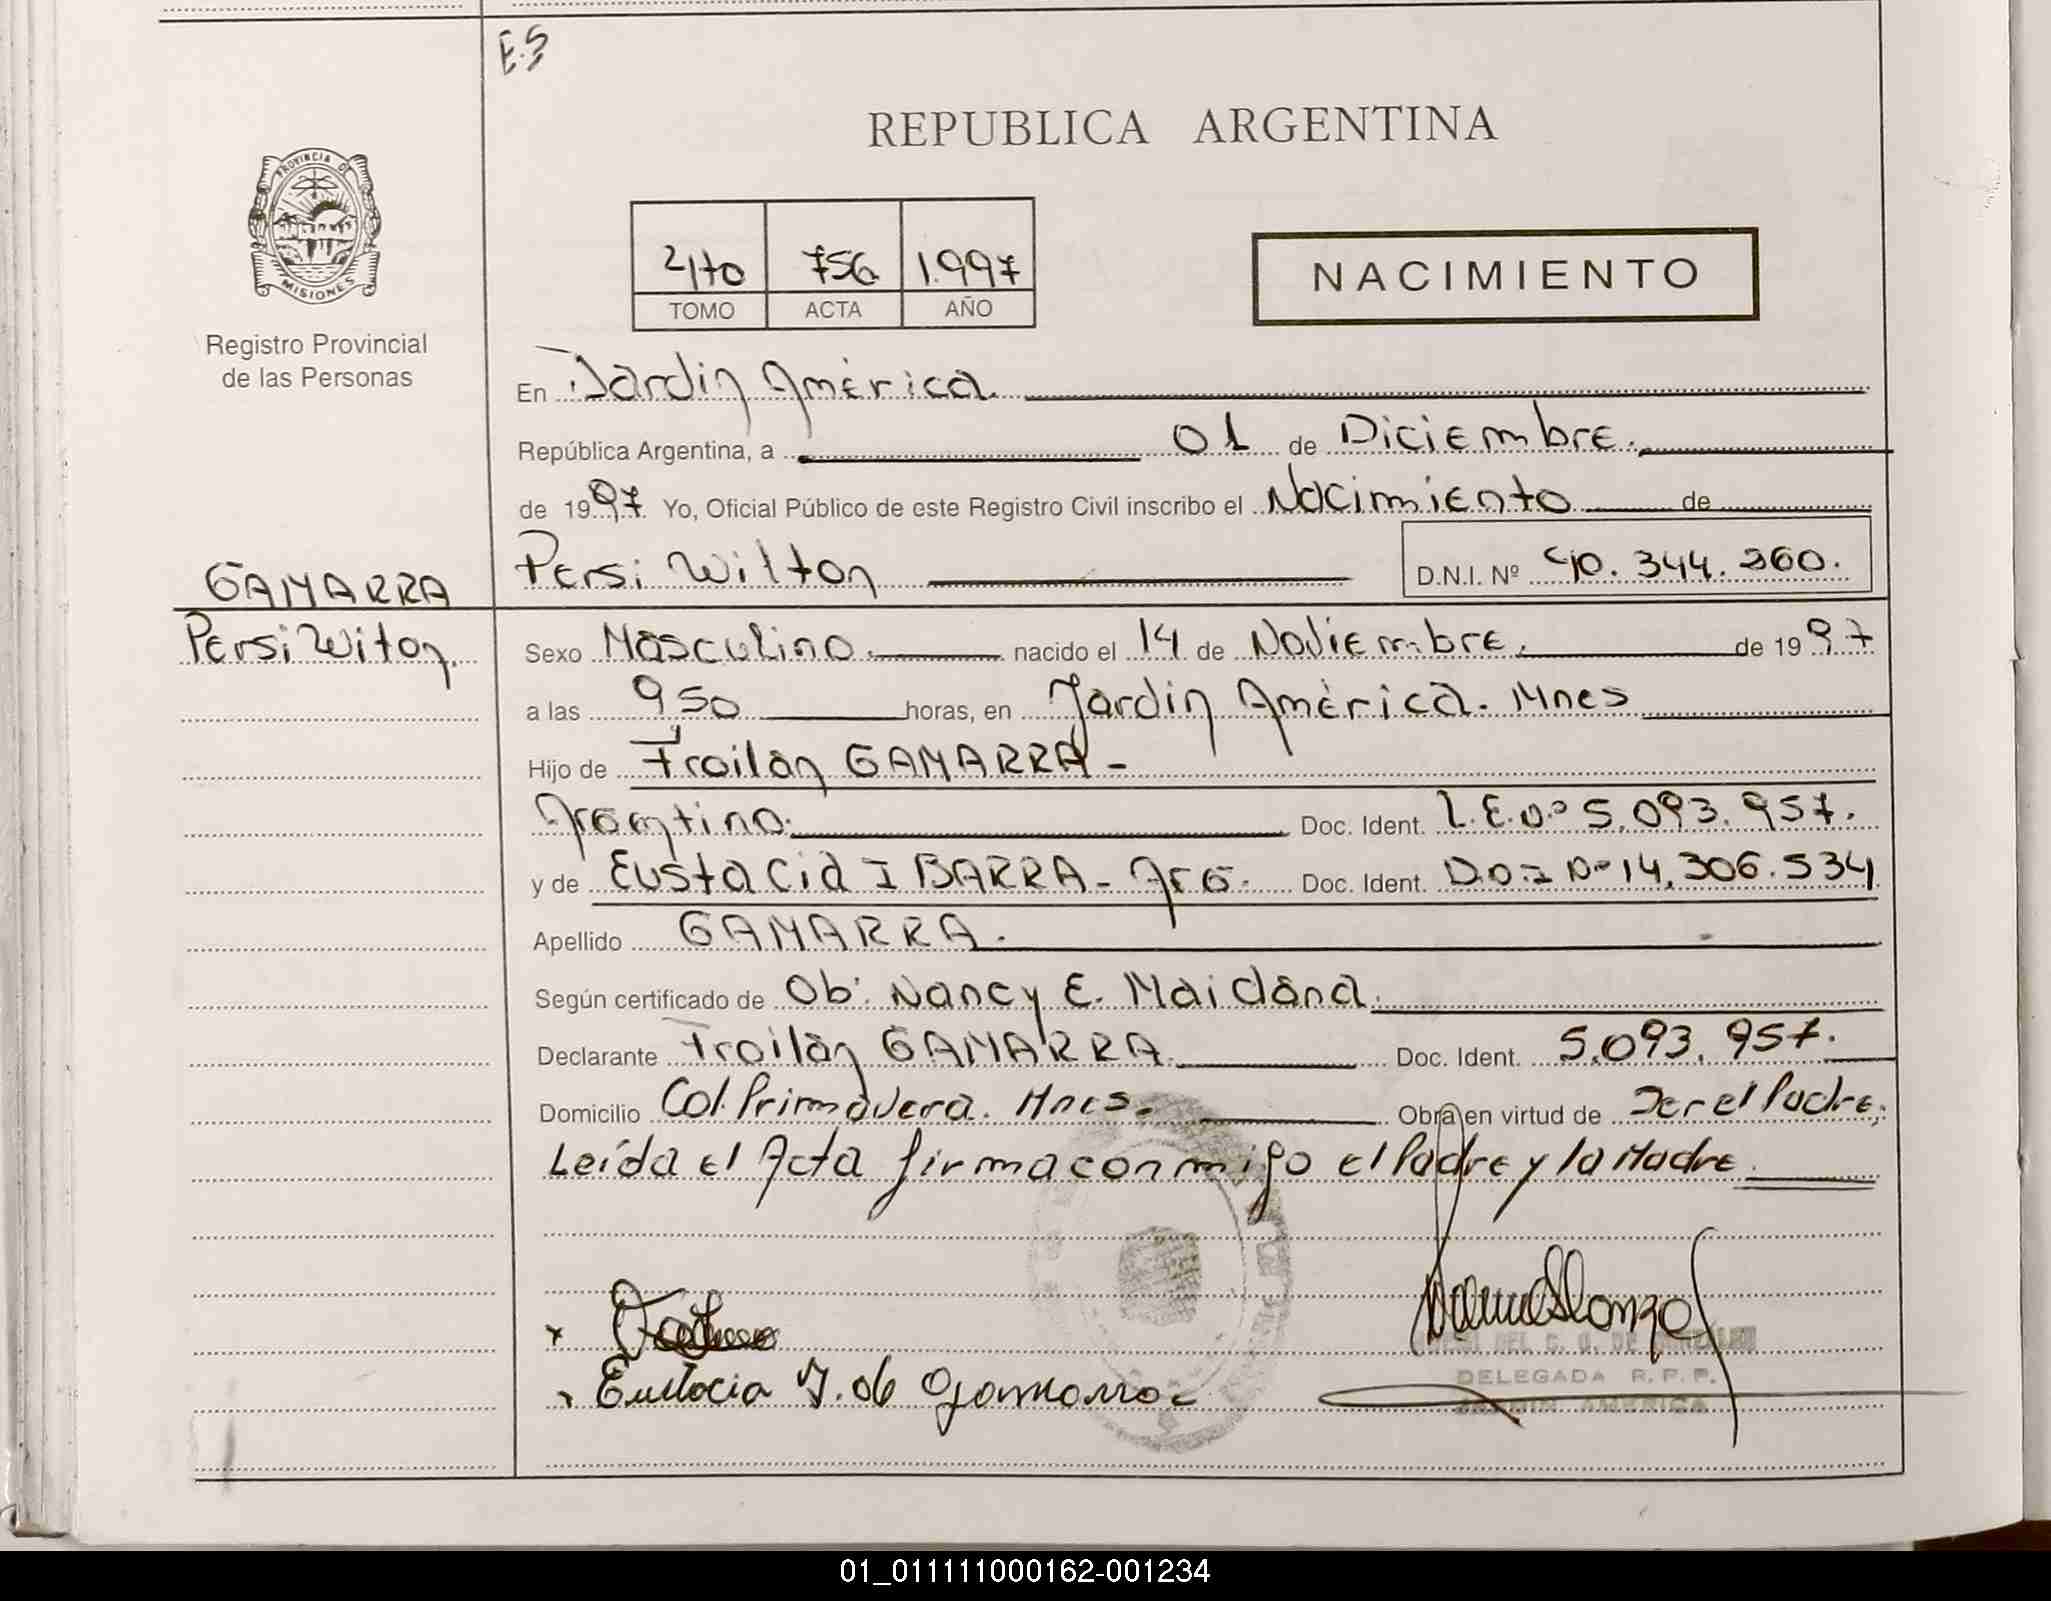 E.S
REPUBLICA ARGENTINA
PROVINCIA DE
MISIONES
Registro Provincial
de las Personas
4to 756 1.997
TOMO ACTA AÑO
NACIMIENTO
En Jardin América.
República Argentina, a 01 de Diciembre.
de 1997. Yo, Oficial Público de este Registro Civil inscribo el Nacimiento de
Persi Wilton D.N.I. Nº 40.344.260.
GAMARRA
Persi Wilton.
Sexo Masculino. nacido el 14 de Noviembre. de 1997
a las 950 horas, en Jardin América. Mnes
Hijo de Froilán GAMARRA -
Argentino. Doc. Ident. L.E.Nº 5.093.957.
y de Eustacia IBARRA - Arg. Doc. Ident. D.N.I Nº 14.306.534
Apellido GAMARRA.
Según certificado de Ob: Nancy E. Maidana.
Declarante Froilán GAMARRA. Doc. Ident. 5.093.957.
Domicilio Col. Primavera. Mnes. Obra en virtud de Ser el Padre,
Leída el Acta firma conmigo el Padre y la Madre.
x
x Eustocia Y. de Gamarra
DEL C. G. DE
DELEGADA R.P.P.
JARDIN AMERICA
01_011111000162-001234